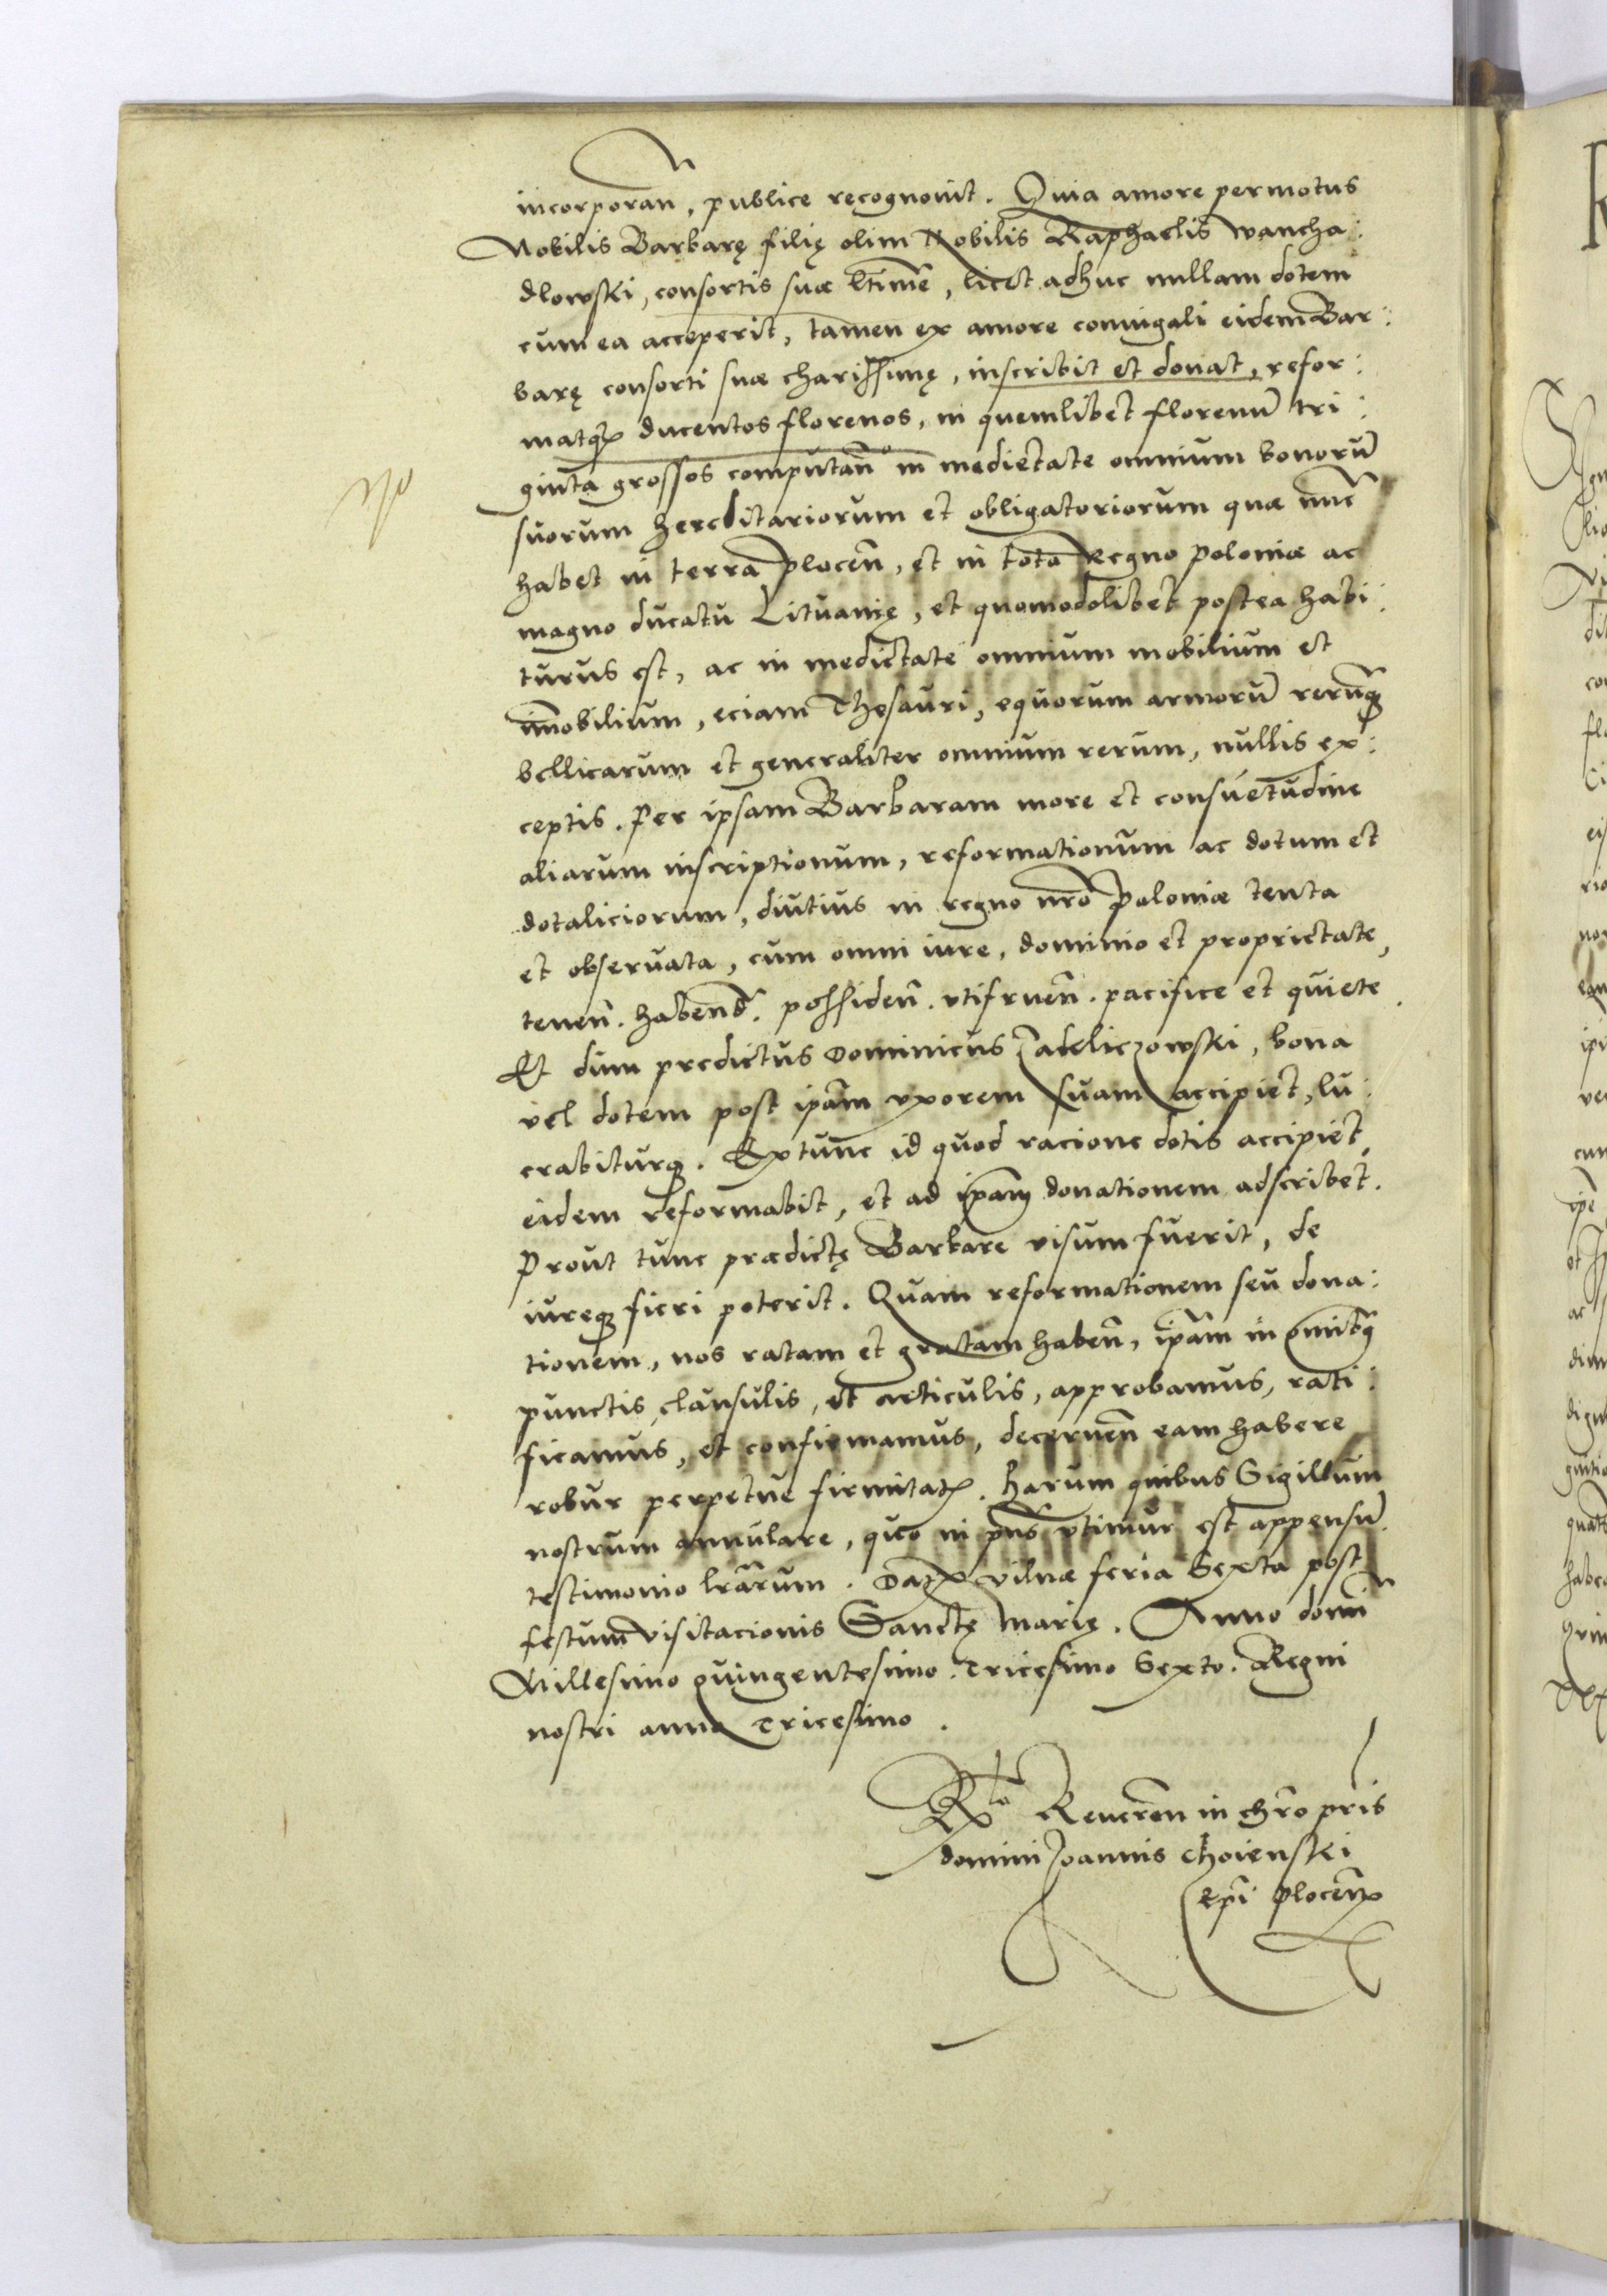 incorporan̄, publice recognovit. Quia amore permotus
Nobilis Barbarę filię olim Nobilis Raphaelis Wancha:
dlowski, consortis suæ ltīme, licet adhuc nullam dotem
cum ea acceperit, tamen ex amore coniugali eidem Bar:
barę consorti suæ charissimę, inscribit et donat, refor:
matqꝫ ducentos florenos, in quemlibet florenū tri:
ginta grossos computan̄ in medietate omnium bonorū
suorum hereditariorum et obligatoriorum quæ nūc
habet in terra plocen̄, et in toto Regno poloniæ ac
magno ducatu Lituanię, et quomodolibet postea habi:
turus est, ac in medietate omnium mobilium et
im̄obilium, eciam Thesauri, equorum armorū rerūqꝫ
bellicarum et generaliter omnium rerum, nullis ex:
ceptis. Per ipsam Barbaram more et consuetudine
aliarum inscriptionum, reformationum ac dotum et
dotaliciorum, diutius in regno nr̄o poloniæ tenta
et observata, cum omni iure, dominio et proprietate,
tenen̄. habend̄. possiden̄. utifruen̄. pacifice et quiete.
Et dum predictus Dominicus Zadeliczowski, bona
vel dotem post ipām uxorem suam accipiet, lu:
crabiturqꝫ. Extunc id quod racione dotis accipiet,
eidem reformabit, et ad ipām donationem adscribet.
Prout tunc prædictę Barbare visum fuerit, de
iureqꝫ fieri poterit. Quam reformationem seu dona:
tionem, nos ratam et gratam haben̄, ipām in om̄ibꝫ
punctis, clausulis, et articulis, approbamus, rati:
ficamus, et confirmamus, decernen̄ eam habere
robur perpetue firmitatꝭ. Harum quibus Sigillum
nostrum annulare, quo in pn̄s utimur est appensū
testimonio lrārum. Datꝭ Vilnæ feria Sexta post
festum visitacionis Sanctę Marię. Anno domī
Millesimo quingentesimo tricesimo Sexto. Regni
nostri anno Tricesimo.
Rᵗᵒ Reveren̄ in chr̄o pr̄is
domini Joannis Choienski
Ep̄i plocen̄